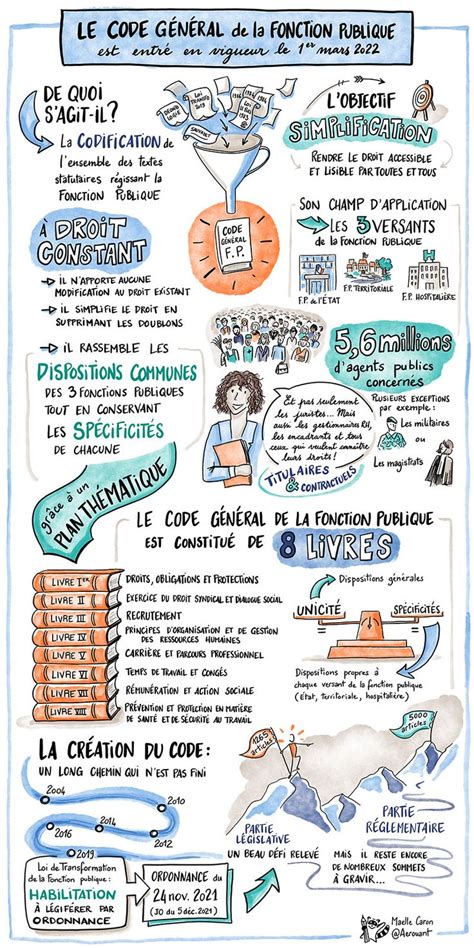 LE CODE GÉNÉRAL de la FONCTION PUBLIQUE
est entré en vigueur le 1er mars 2022
DE QUOI
S'AGIT-IL?
→ La CODIFICATION de
l'ensemble des textes
statutaires régissant la
FONCTION PUBLIQUE
LOI
TRANSFO
2019
1986
1984
LOI
1983
CODE
GÉNÉRAL
F.P.
L'OBJECTIF
SIMPLIFICATION
RENDRE LE DROIT ACCESSIBLE
ET LISIBLE PAR TOUTES ET TOUS
SON CHAMP D'APPLICATION
→ LES 3 VERSANTS
de la FONCTION PUBLIQUE
F.P. de l'ÉTAT
F.P. TERRITORIALE
F.P. HOSPITALIÈRE
À DROIT
CONSTANT
→ IL N'APPORTE AUCUNE
MODIFICATION AU DROIT EXISTANT
→ IL SIMPLIFIE LE DROIT EN
SUPPRIMANT LES DOUBLONS
→ IL RASSEMBLE LES
DISPOSITIONS COMMUNES
DES 3 FONCTIONS PUBLIQUES
TOUT EN CONSERVANT
LES SPÉCIFICITÉS
DE CHACUNE
5,6 millions
d'agents publics
concernés
Et pas seulement
les juristes... Mais
aussi les gestionnaires RH,
les encadrants et tous
ceux qui veulent connaître
leurs droits!
TITULAIRES
& CONTRACTUELS
PLUSIEURS EXCEPTIONS
par exemple:
Les militaires
ou
Les magistrats
grâce à un
PLAN THÉMATIQUE
LE CODE GÉNÉRAL DE LA FONCTION PUBLIQUE
EST CONSTITUÉ DE 8 LIVRES
LIVRE Ier DROITS, OBLIGATIONS ET PROTECTIONS
LIVRE II EXERCICE DU DROIT SYNDICAL ET DIALOGUE SOCIAL
LIVRE III RECRUTEMENT
LIVRE IV PRINCIPES D'ORGANISATION ET DE GESTION
DES RESSOURCES HUMAINES
LIVRE V CARRIÈRE ET PARCOURS PROFESSIONNEL
LIVRE VI TEMPS DE TRAVAIL ET CONGÉS
LIVRE VII RÉMUNÉRATION ET ACTION SOCIALE
LIVRE VIII PRÉVENTION ET PROTECTION EN MATIÈRE
DE SANTÉ ET DE SÉCURITÉ AU TRAVAIL
Dispositions générales
UNICITÉ
SPÉCIFICITÉS
Dispositions propres à
chaque versant de la fonction publique
(État, territoriale, hospitalière)
LA CRÉATION DU CODE:
UN LONG CHEMIN QUI N'EST PAS FINI
2004
2010
2016
2014
2012
2019
Loi de Transformation
de la Fonction publique:
HABILITATION
À LÉGIFÉRER PAR
ORDONNANCE
ORDONNANCE du
24 nov. 2021
(JO du 5 déc. 2021)
1265
articles
5000
articles
PARTIE
LÉGISLATIVE
UN BEAU DÉFI RELEVÉ
PARTIE
RÉGLEMENTAIRE
MAIS IL RESTE ENCORE
DE NOMBREUX SOMMETS
À GRAVIR...
Maelle Caron
@Aerouant